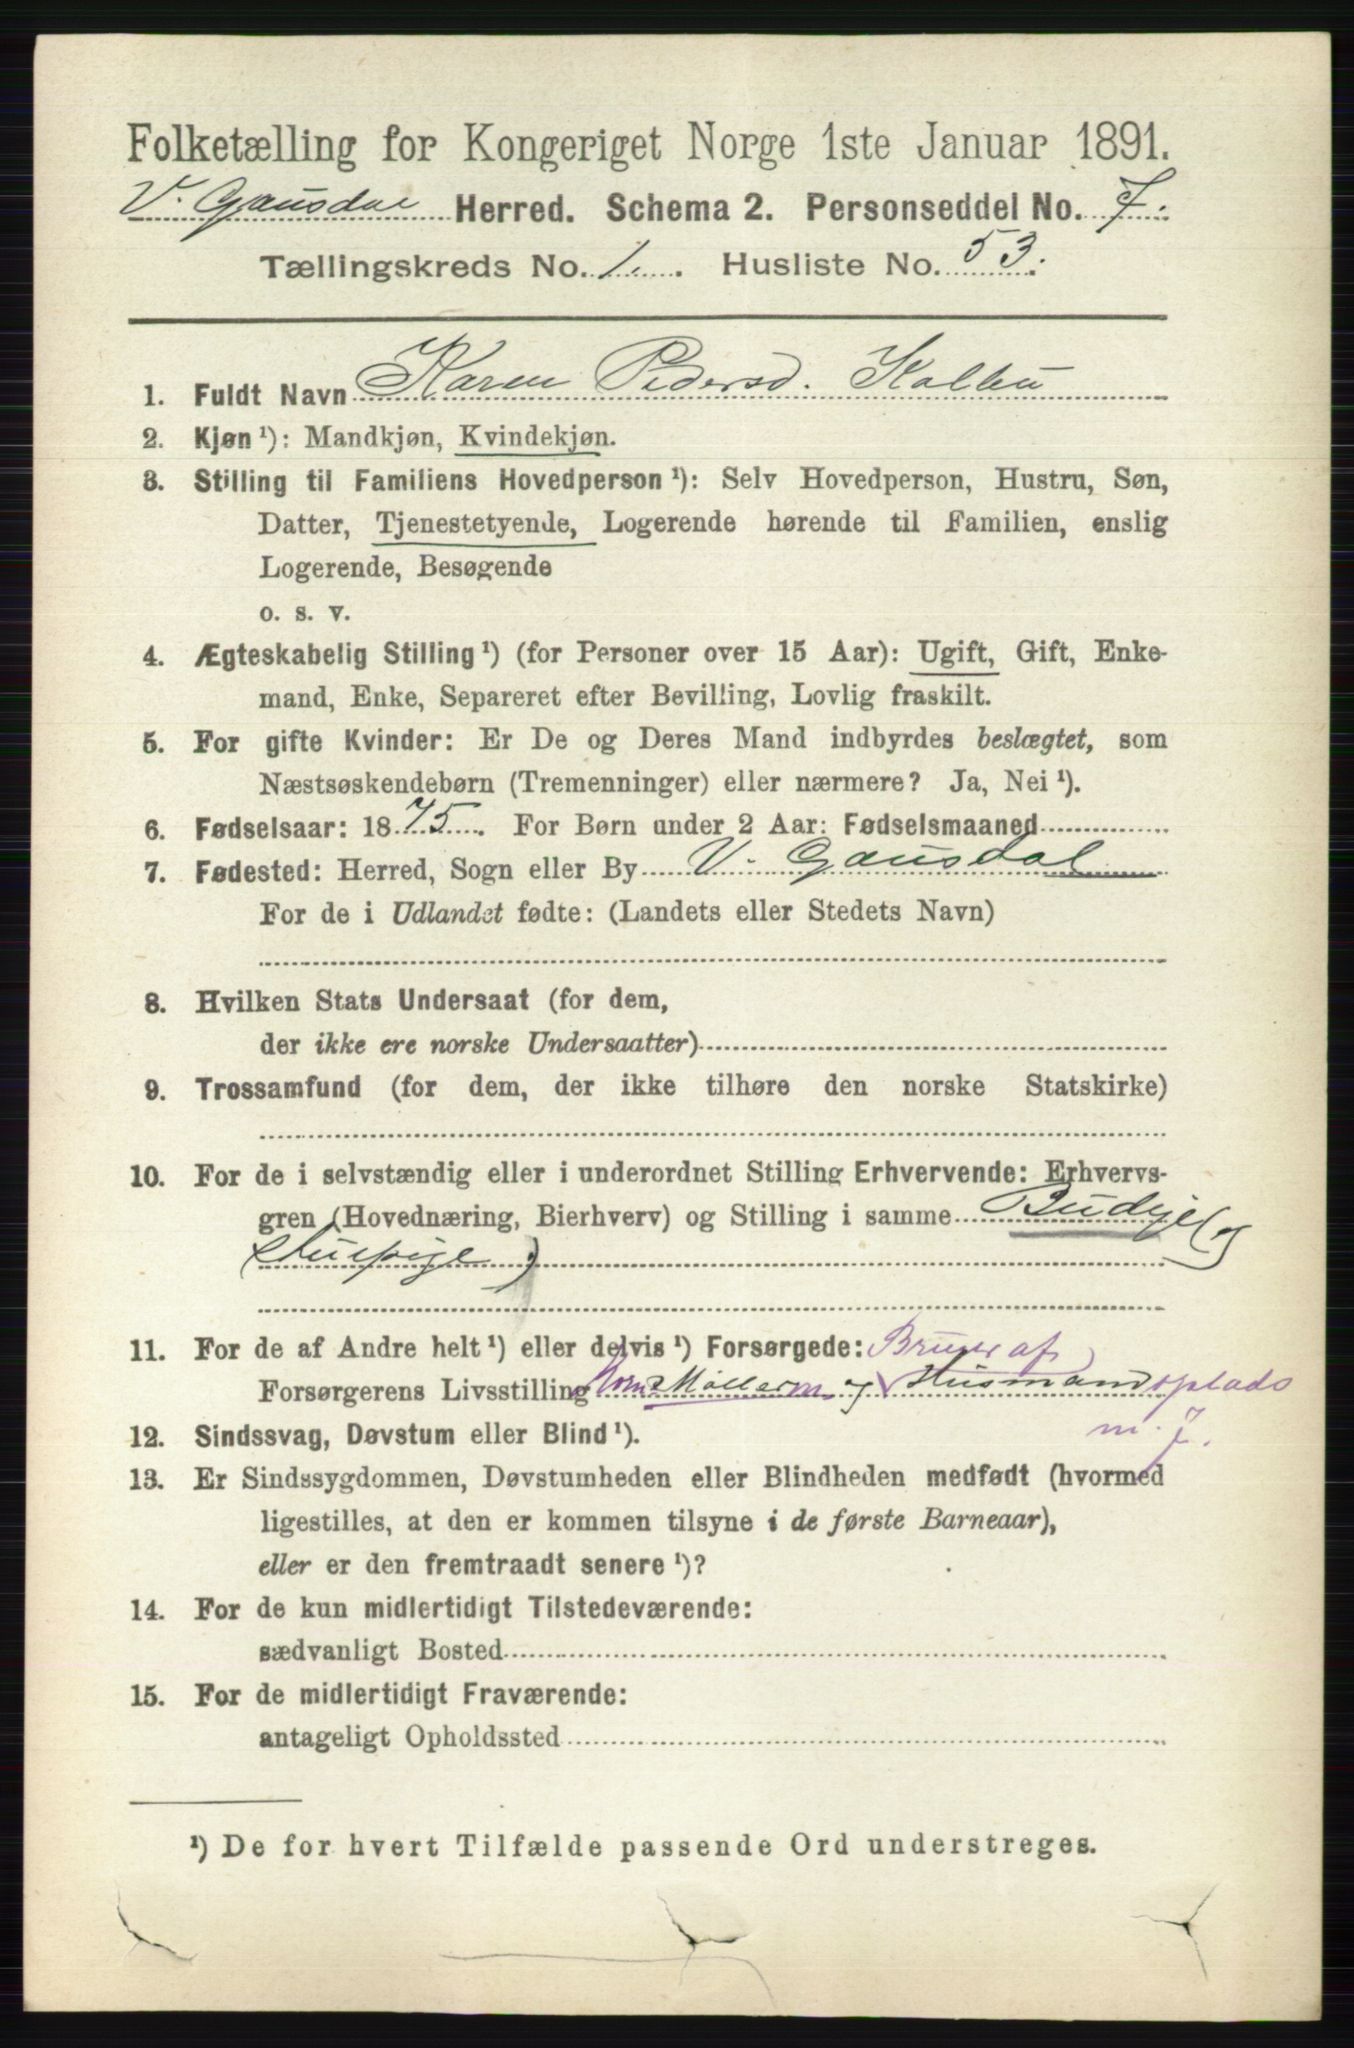 Folketælling for Kongeriget Norge 1ste Januar 1891.
V. Gausdal Herred. Schema 2. Personseddel No. 7.
Tællingskreds No. 1. Husliste No. 53.
1. Fuldt Navn Karen Pedersd. Kolbu
2. Kjøn ¹): Mandkjøn, Kvindekjøn.
3. Stilling til Familiens Hovedperson ¹): Selv Hovedperson, Hustru, Søn,
Datter, Tjenestetyende, Logerende hørende til Familien, enslig
Logerende, Besøgende
o. s. v.
4. Ægteskabelig Stilling ¹) (for Personer over 15 Aar): Ugift, Gift, Enke-
mand, Enke, Separeret efter Bevilling, Lovlig fraskilt.
5. For gifte Kvinder: Er De og Deres Mand indbyrdes beslægtet, som
Næstsøskendebørn (Tremenninger) eller nærmere? Ja, Nei ¹).
6. Fødselsaar: 1875. For Børn under 2 Aar: Fødselsmaaned
7. Fødested: Herred, Sogn eller By V. Gausdal
For de i Udlandet fødte: (Landets eller Stedets Navn)
8. Hvilken Stats Undersaat (for dem,
der ikke ere norske Undersaatter)
9. Trossamfund (for dem, der ikke tilhøre den norske Statskirke)
10. For de i selvstændig eller i underordnet Stilling Erhvervende: Erhvervs-
gren (Hovednæring, Bierhverv) og Stilling i samme Budeje (og
stuepige)
11. For de af Andre helt ¹) eller delvis ¹) Forsørgede: Bruger af
Forsørgerens Livsstilling Møller og Husmandsplads
m. J.
12. Sindssvag, Døvstum eller Blind ¹).
13. Er Sindssygdommen, Døvstumheden eller Blindheden medfødt (hvormed
ligestilles, at den er kommen tilsyne i de første Barneaar),
eller er den fremtraadt senere ¹)?
14. For de kun midlertidigt Tilstedeværende:
sædvanligt Bosted
15. For de midlertidigt Fraværende:
antageligt Opholdssted
¹) De for hvert Tilfælde passende Ord understreges.